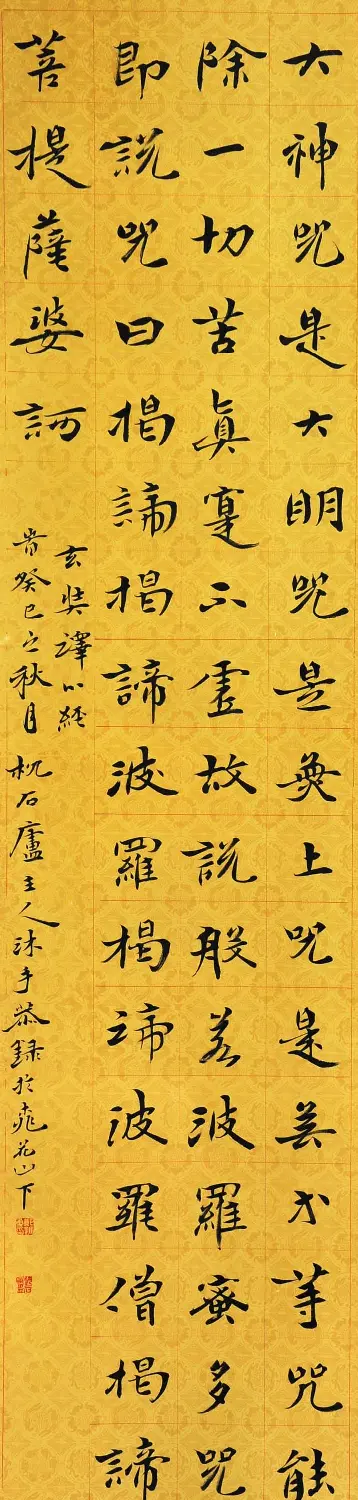 大神咒是大明咒是無上咒是無等等咒能
除一切苦眞寔不虛故說般若波羅蜜多咒
即說咒曰揭諦揭諦波羅揭諦波羅僧揭諦
菩提薩婆訶
玄奘譯心經
旹癸巳之秋月枕石廬主人沐手恭録於桃花山下